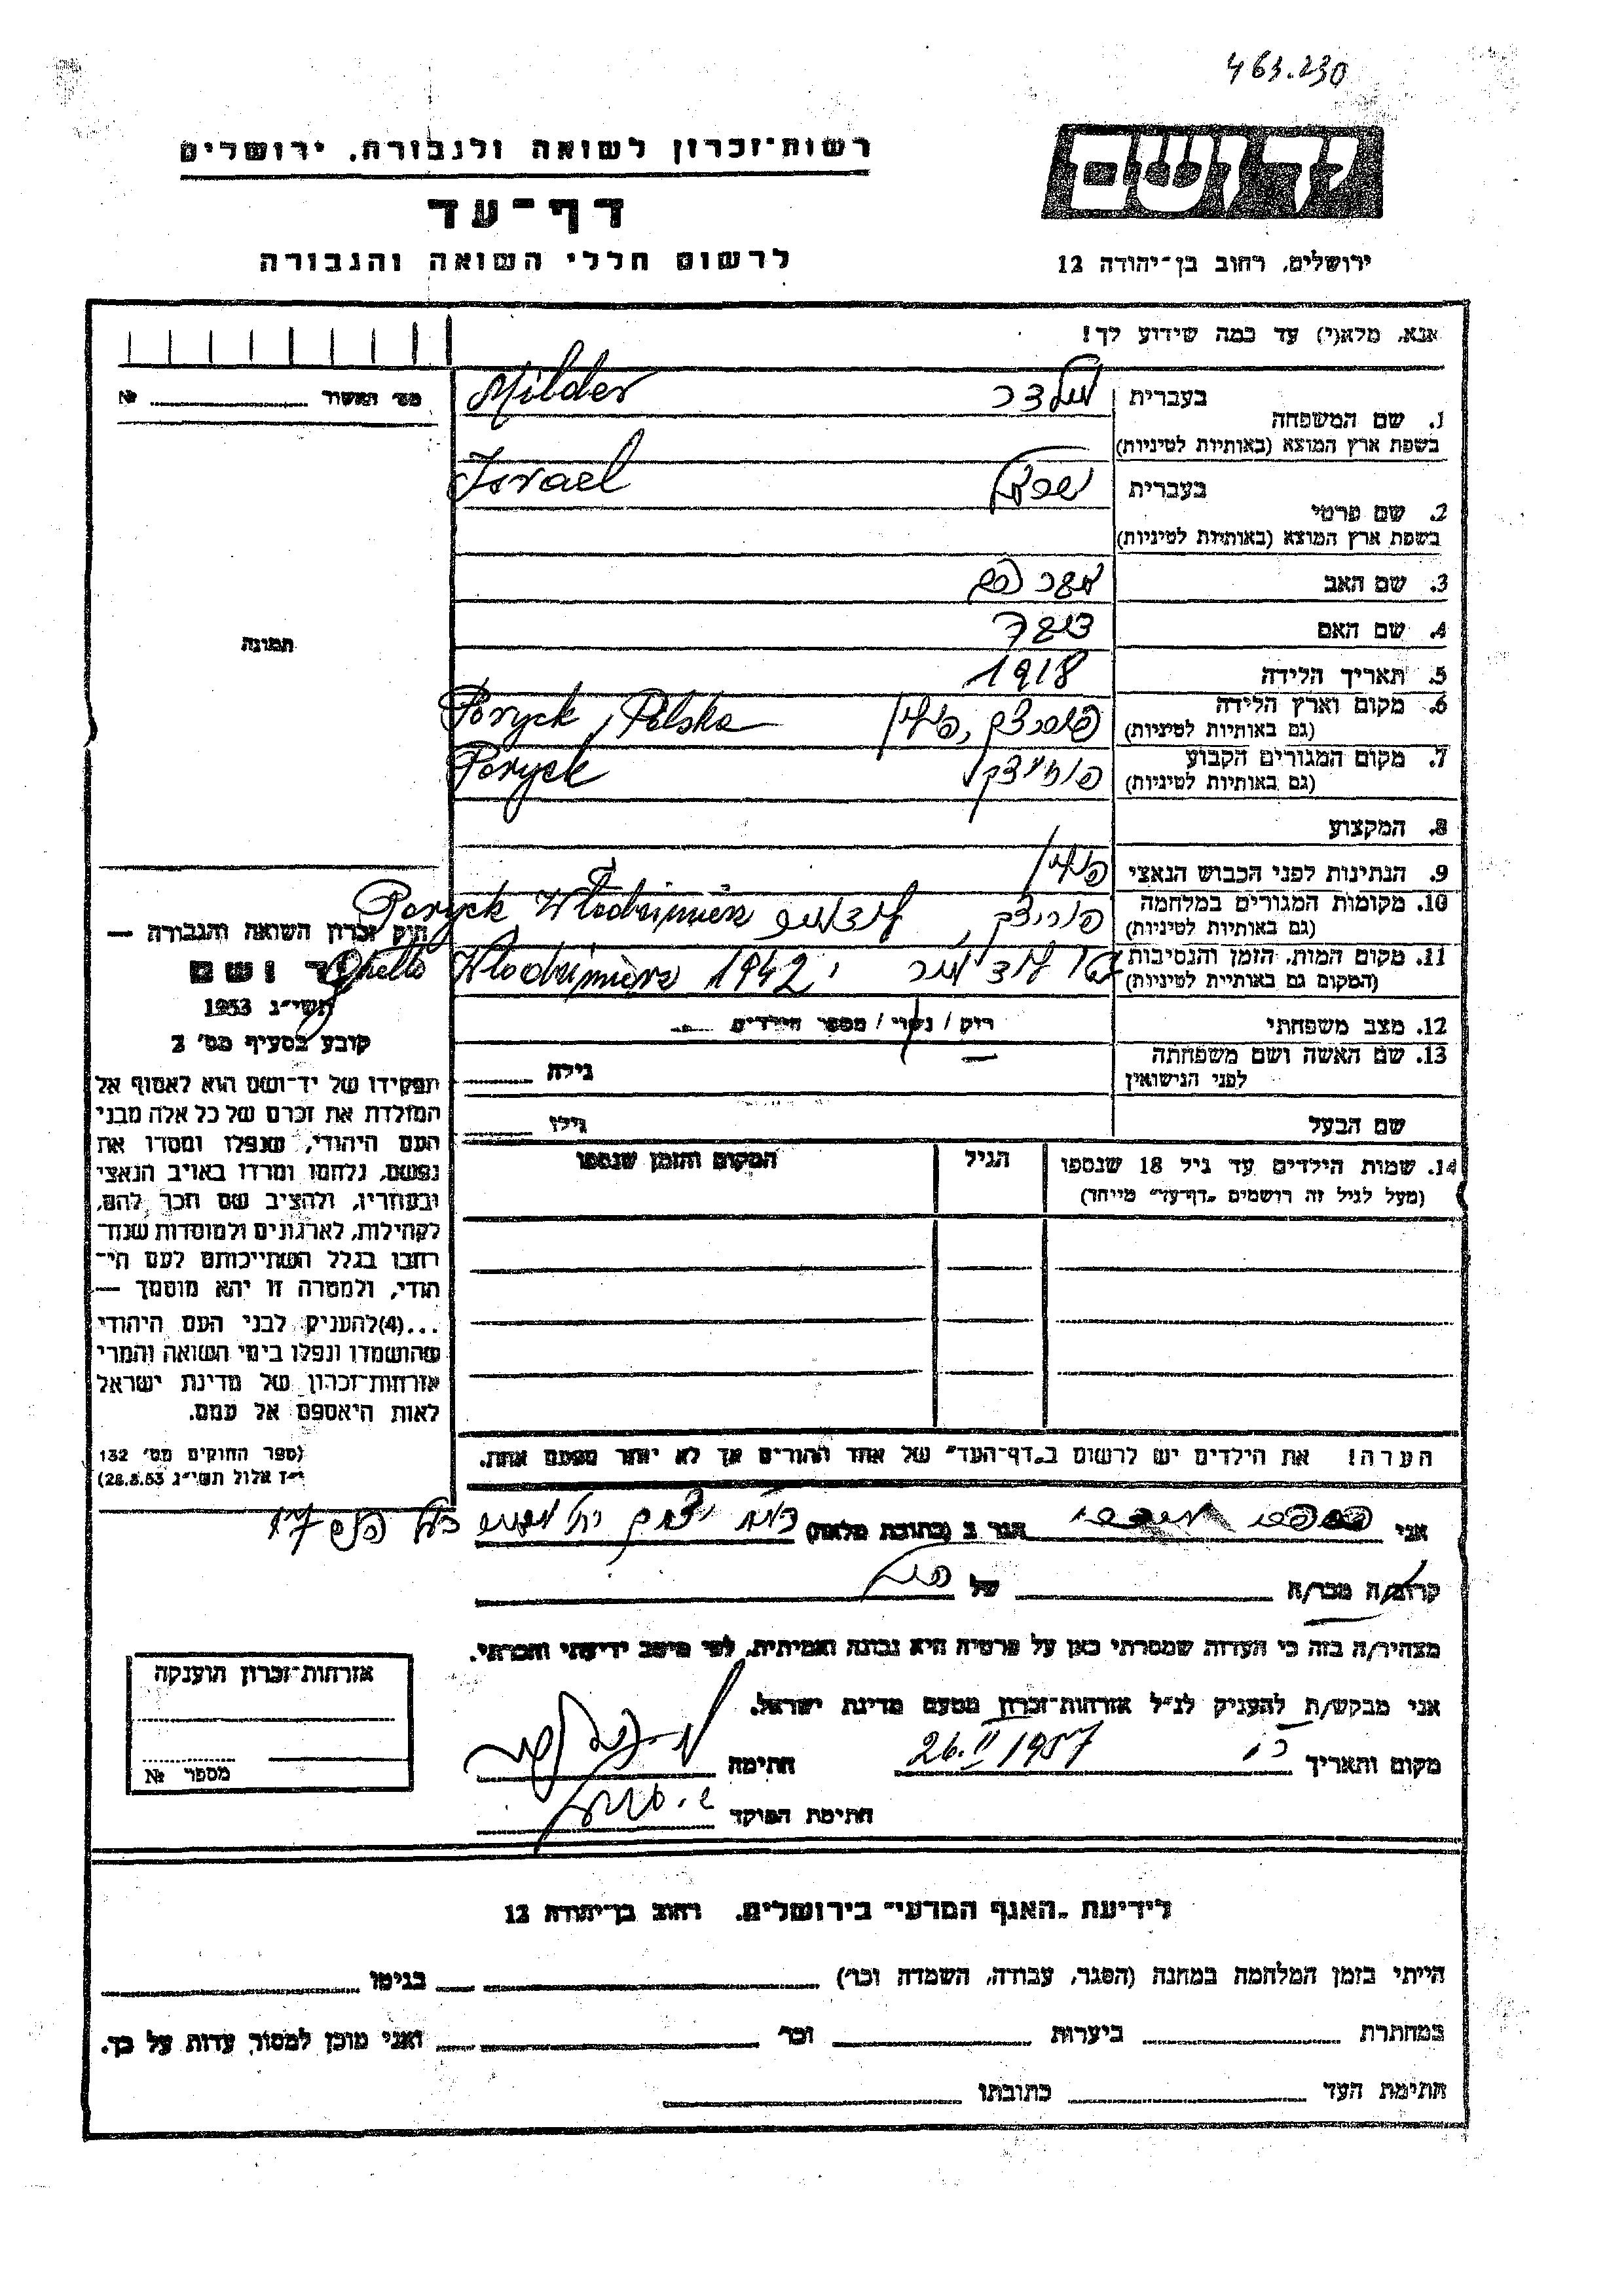 463.230
ידושם
רשות־זכרון לשואה ולגבורה, ירושלים
דף־עד
לרשום חללי השואה והגבורה
ירושלים, רחוב בן־יהודה 12
אנא, מלא(י) עד כמה שידוע לך!
מס' האשור № 
1. שם המשפחה
בעברית מילדר Milder
בשפת ארץ המוצא (באותיות לטיניות)
2. שם פרטי
בעברית ישראל Israel
בשפת ארץ המוצא (באותיות לטיניות)
3. שם האב
4. שם האם
5. תאריך הלידה 1918
6. מקום וארץ הלידה פוריצק, פולין Poryck, Polska
(גם באותיות לטיניות)
7. מקום המגורים הקבוע פוריצק Poryck
(גם באותיות לטיניות)
8. המקצוע
9. הנתינות לפני הכבוש הנאצי פולין
10. מקומות המגורים במלחמה פוריצק, Poryck Włodzimierz
(גם באותיות לטיניות)
11. מקום המות, הזמן והנסיבות 1942 Ghetto Włodzimierz
(המקום גם באותיית לטיניות)
12. מצב משפחתי רווק / נשוי / מספר הילדים
13. שם האשה ושם משפחתה גילה
לפני הנישואין
שם הבעל גילו
14. שמות הילדים עד גיל 18 שנספו הגיל המקום והזמן שנספו
(מעל לגיל זה רושמים "דף־עד" מייחד)
הערה! את הילדים יש לרשום ב"דף־העד" של אחד ההורים אך לא יותר מפעם אחת.
תמונה
חוק זכרון השואה והגבורה —
יד ושם
תשי"ג 1953
קובע בסעיף מס' 2
תפקידו של יד־ושם הוא לאסוף אל
המולדת את זכרם של כל אלה מבני
העם היהודי, שנפלו ומסרו את
נפשם, נלחמו ומרדו באויב הנאצי
ובעוזריו, ולהציב שם וזכר להם,
לקהילות, לארגונים ולמוסדות שנח־
רבו בגלל השתייכותם לעם הי־
הודי, ולמטרה זו יהא מוסמך —
...(4)להעניק לבני העם היהודי
שהושמדו ונפלו בימי השואה והמרי
אזרחות־זכרון של מדינת ישראל
לאות היאספם אל עמם.
(ספר החוקים מס' 132
י"ז אלול תשי"ג 28.8.53)
אני הגר ב (כתובת מלאה)
קרוב/ה מכר/ה של
מצהיר/ה בזה כי העדות שמסרתי כאן על פרטיה היא נכונה ואמיתית, לפי מיטב ידיעתי והכרתי.
אני מבקש/ת להעניק לנ"ל אזרחות־זכרון מטעם מדינת ישראל.
מקום ותאריך 26.II 1957 חתימה
חתימת הפוקד
אזרחות־זכרון הוענקה
מספר №
לידיעת "האגף המדעי" בירושלים, רחוב בן־יהודה 12
הייתי בזמן המלחמה במחנה (הסגר, עבודה, השמדה וכו') בגיטו
במחתרת ביערות וכו' ואני מוכן למסור עדות על כך.
חתימת העד כתובתו